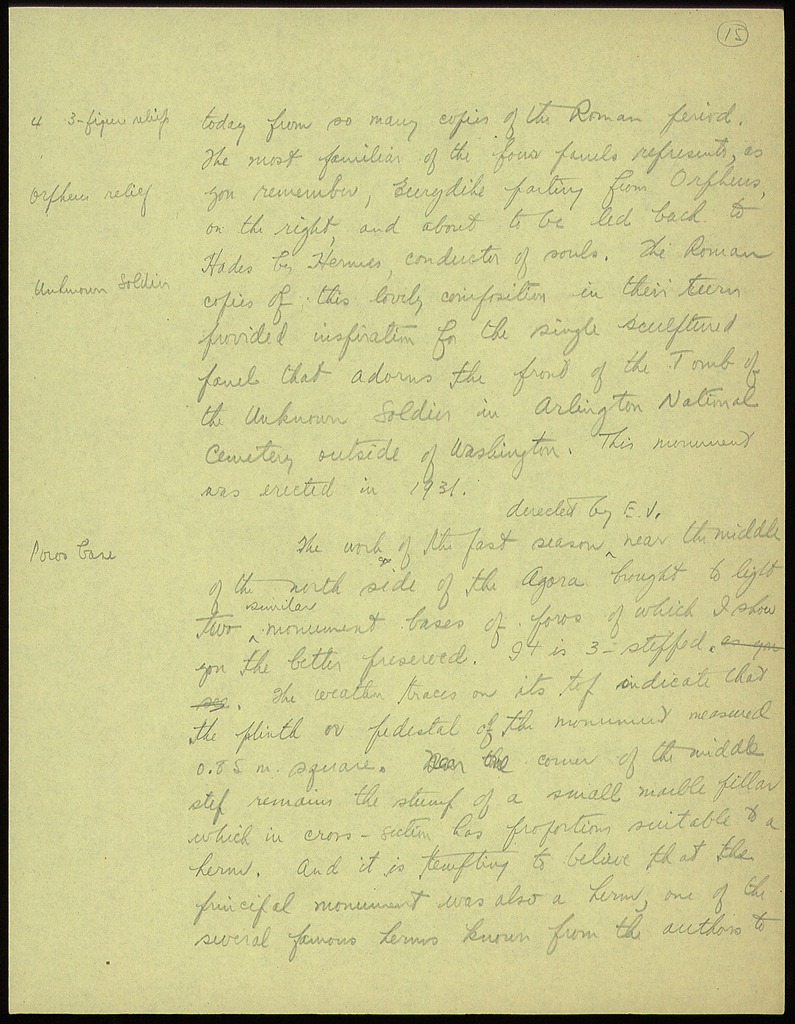 15
4 3-figure reliefs
today from so many copies of the Roman period.
The most familiar of the four panels represents, as
Orpheus relief
you remember, Eurydike parting from Orpheus,
on the right, and about to be led back to
Hades by Hermes, conductor of souls. The Roman
Unknown Soldier
copies of this lovely composition in their turn
provided inspiration for the single sculptured
panel that adorns the front of the Tomb of
the Unknown Soldier in Arlington National
Cemetery outside of Washington. This monument
was erected in 1931.
directed by E.V.
Poros base
The work of the past season near the middle
of the north side of the Agora brought to light
similar
two monument bases of poros of which I show
you the better preserved. It is 3-stepped. as you
see. The weather traces on its top indicate that
the plinth or pedestal of the monument measured
0.85 m. square. Near the corner of the middle
step remains the stump of a small marble pillar
which in cross-section has proportions suitable to a
herm. And it is tempting to believe that the
principal monument was also a herm, one of the
several famous herms known from the authors to